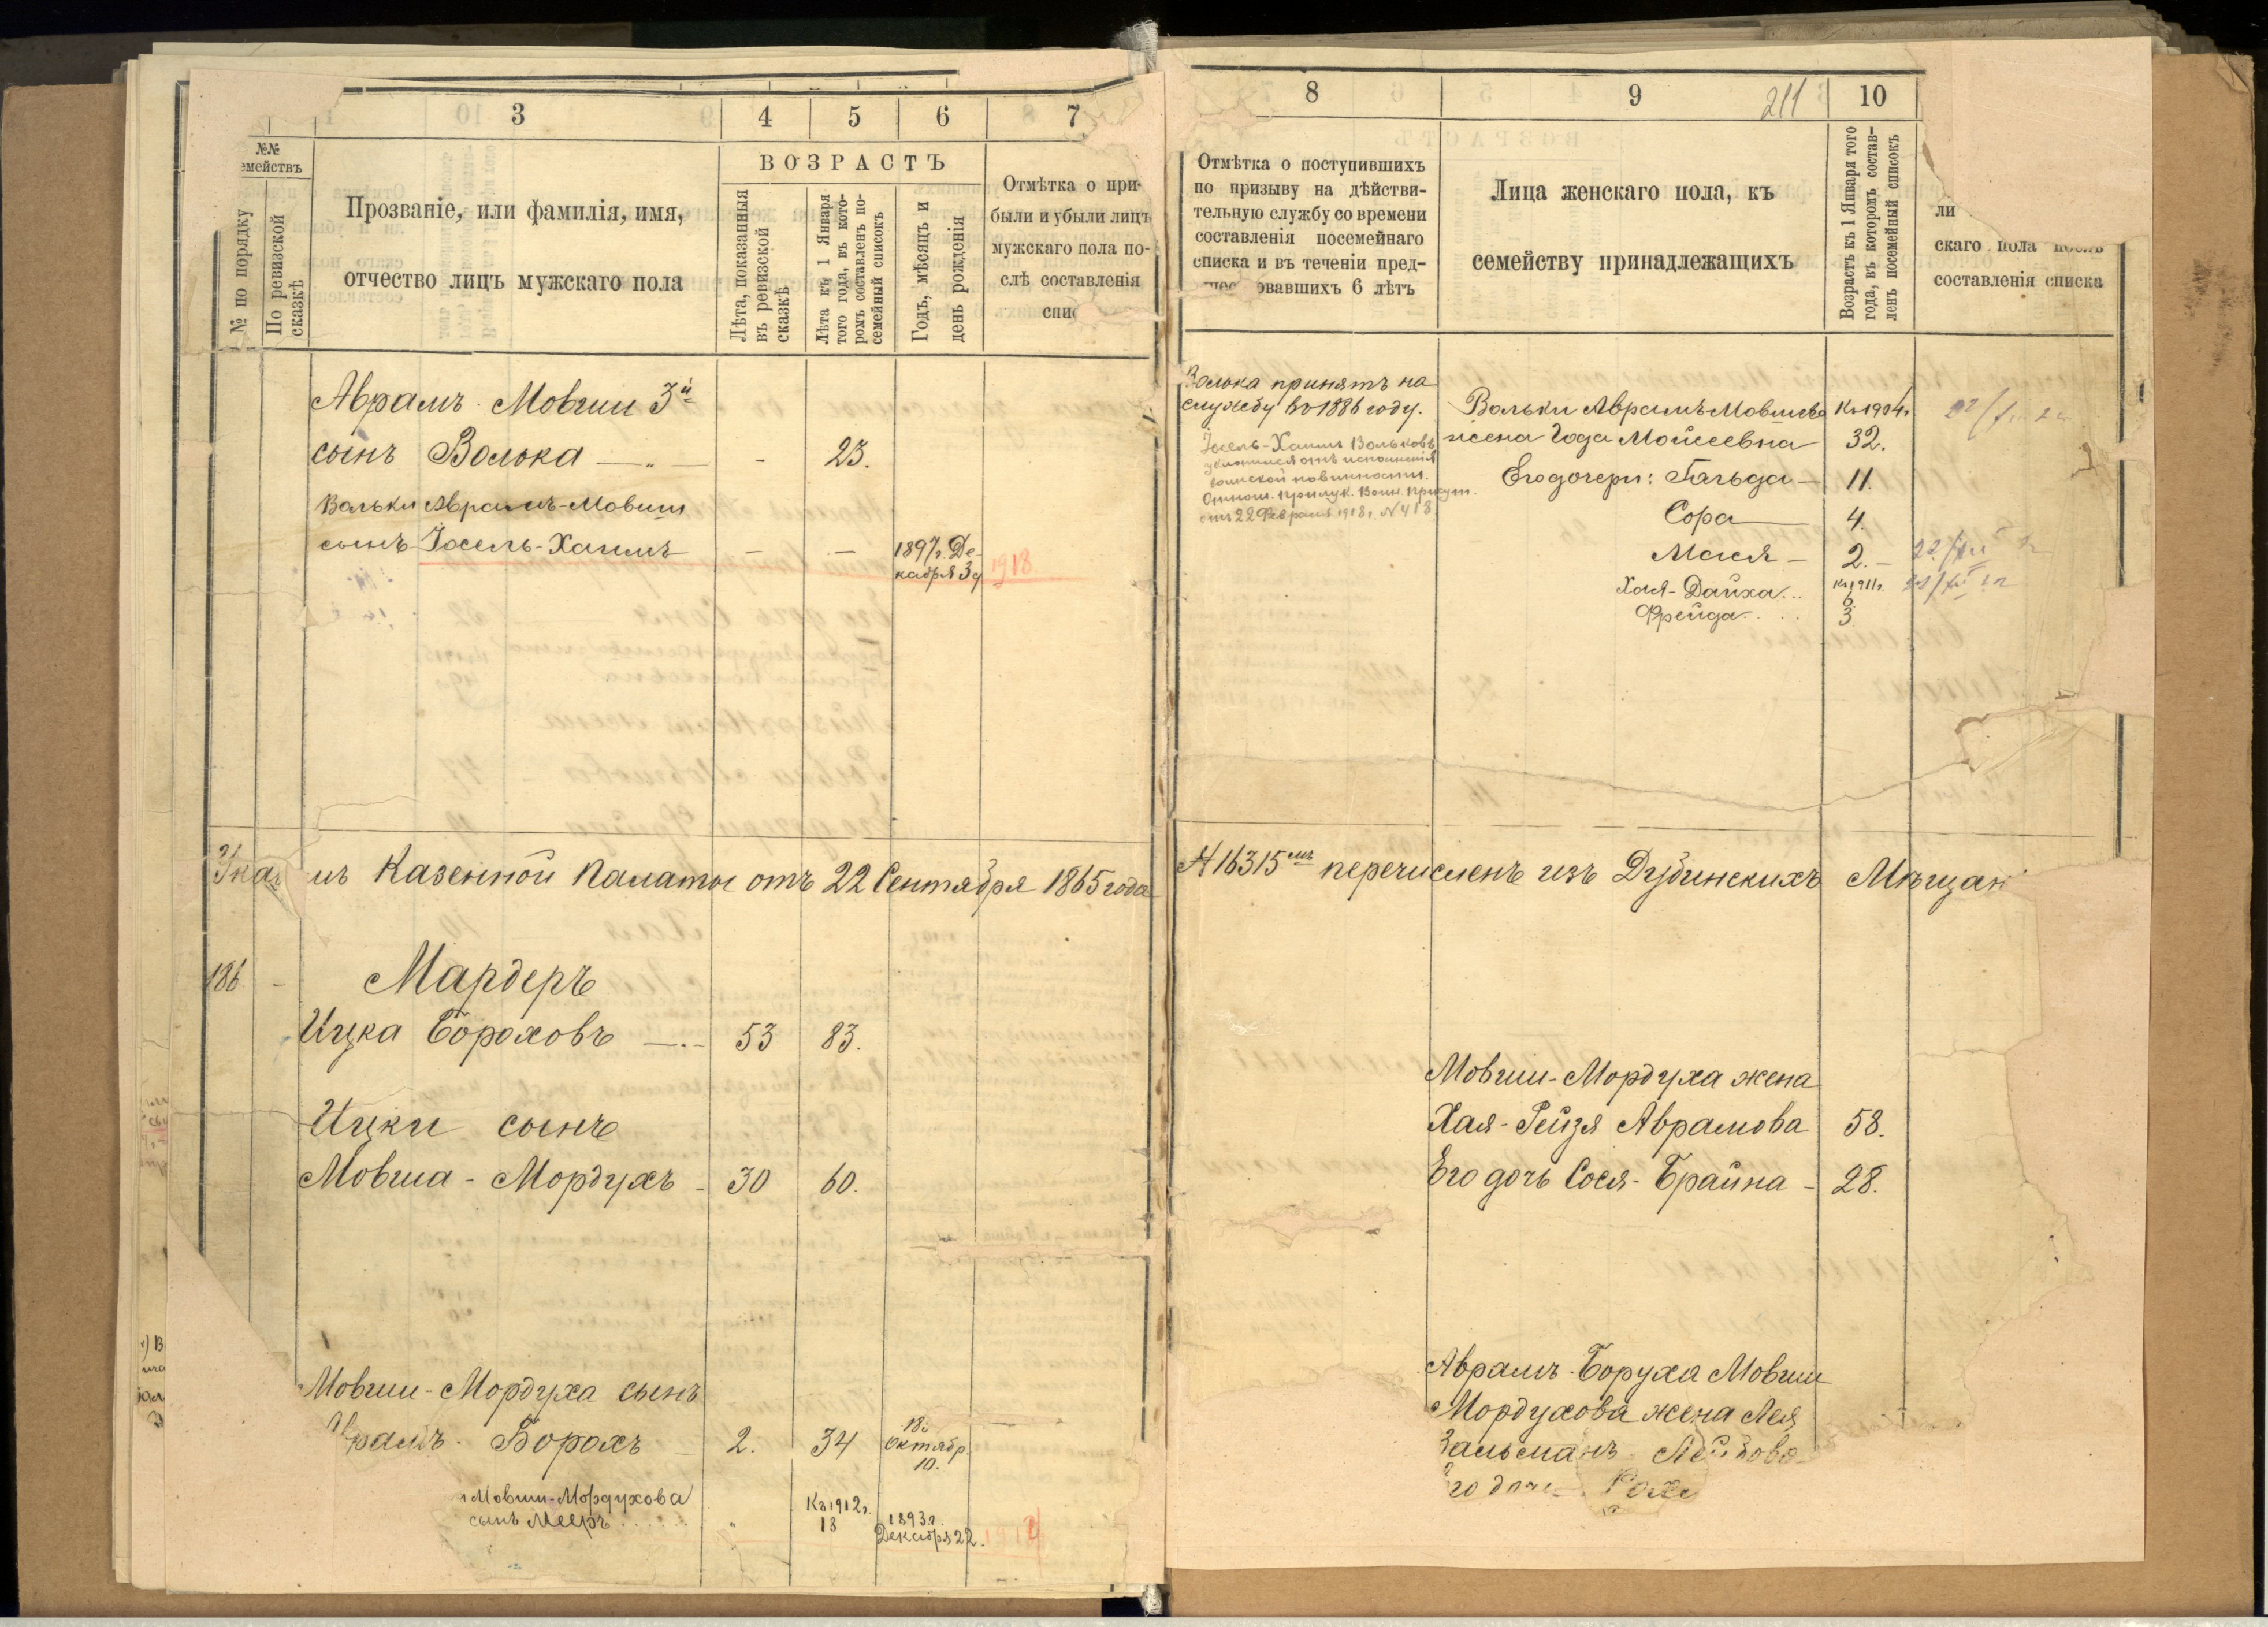 3 4 5 6 7
№№
емействъ
№ по порядку
По ревизской
сказкѣ
Прозваніе, или фамилія, имя,
отчество лицъ мужскаго пола
ВОЗРАСТЪ
Лѣта, показанныя
въ ревизской
сказкѣ
Лѣта къ 1 Января
того года, въ кото-
ромъ составленъ по-
семейный списокъ
Годъ, мѣсяцъ и
день рожденія
Отмѣтка о при-
были и убыли лицъ
мужскаго пола по-
слѣ составленія
спис
Аврамъ Мовши 3й
сынъ Волька — „ — - 23.
Вольки Аврамъ-Мовши
сынъ Іосель-Хаимъ — — 1897г. Де-
кабря 3д 1918
Ука мъ Казенной Палаты отъ 22 Сентября 1865 года
186 - Мардеръ
Ицка Бороховъ 53 83.
Ицки сынъ
Мовша - Мордухъ - 30 60.
Мовши-Мордуха сынъ
Аврамъ - Борохъ 2. 34 18
Октябр.
10.
Мовши-Мордухова
сынъ Мееръ „ Къ 1912г.
18 1893г.
Декабря 22.
8 9 211 10
Отмѣтка о поступившихъ
по призыву на дѣйстви-
тельную службу со времени
составленія посемейнаго
списка и въ теченіи пред-
шес овавшихъ 6 лѣтъ
Лица женскаго пола, къ
семейству принадлежащихъ
Возрастъ къ 1 Января того
года, въ которомъ состав-
ленъ посемейный списокъ
ли
скаго пола послѣ
составленія списка
Волька принятъ на
службу въ 1886 году.
Іосель-Хаимъ Вольковъ
уклонился отъ исполненія
воинской повинности.
Отнош. Прилук. Воин. Присут.
отъ 22 Февраля 1918г. № 418
Вольки Аврамъ-Мовшева Къ 1904г.
жена Года Мойсеевна 32.
Его дочери: Гольда — 11.
Сора 4.
Мася — 2.
Хая-Дайха... Къ 1911г. 6
Фрейда.... 3
№ 16315мъ перечисленъ изъ Дубинскихъ Мѣщан
Мовши-Мордуха жена
Хая-Рейзя Абрамова 58.
Его дочь Сося-Брайна - 28.
Аврамъ-Боруха Мовши
Мордухова жена Лея
Зальманъ-Лейбова